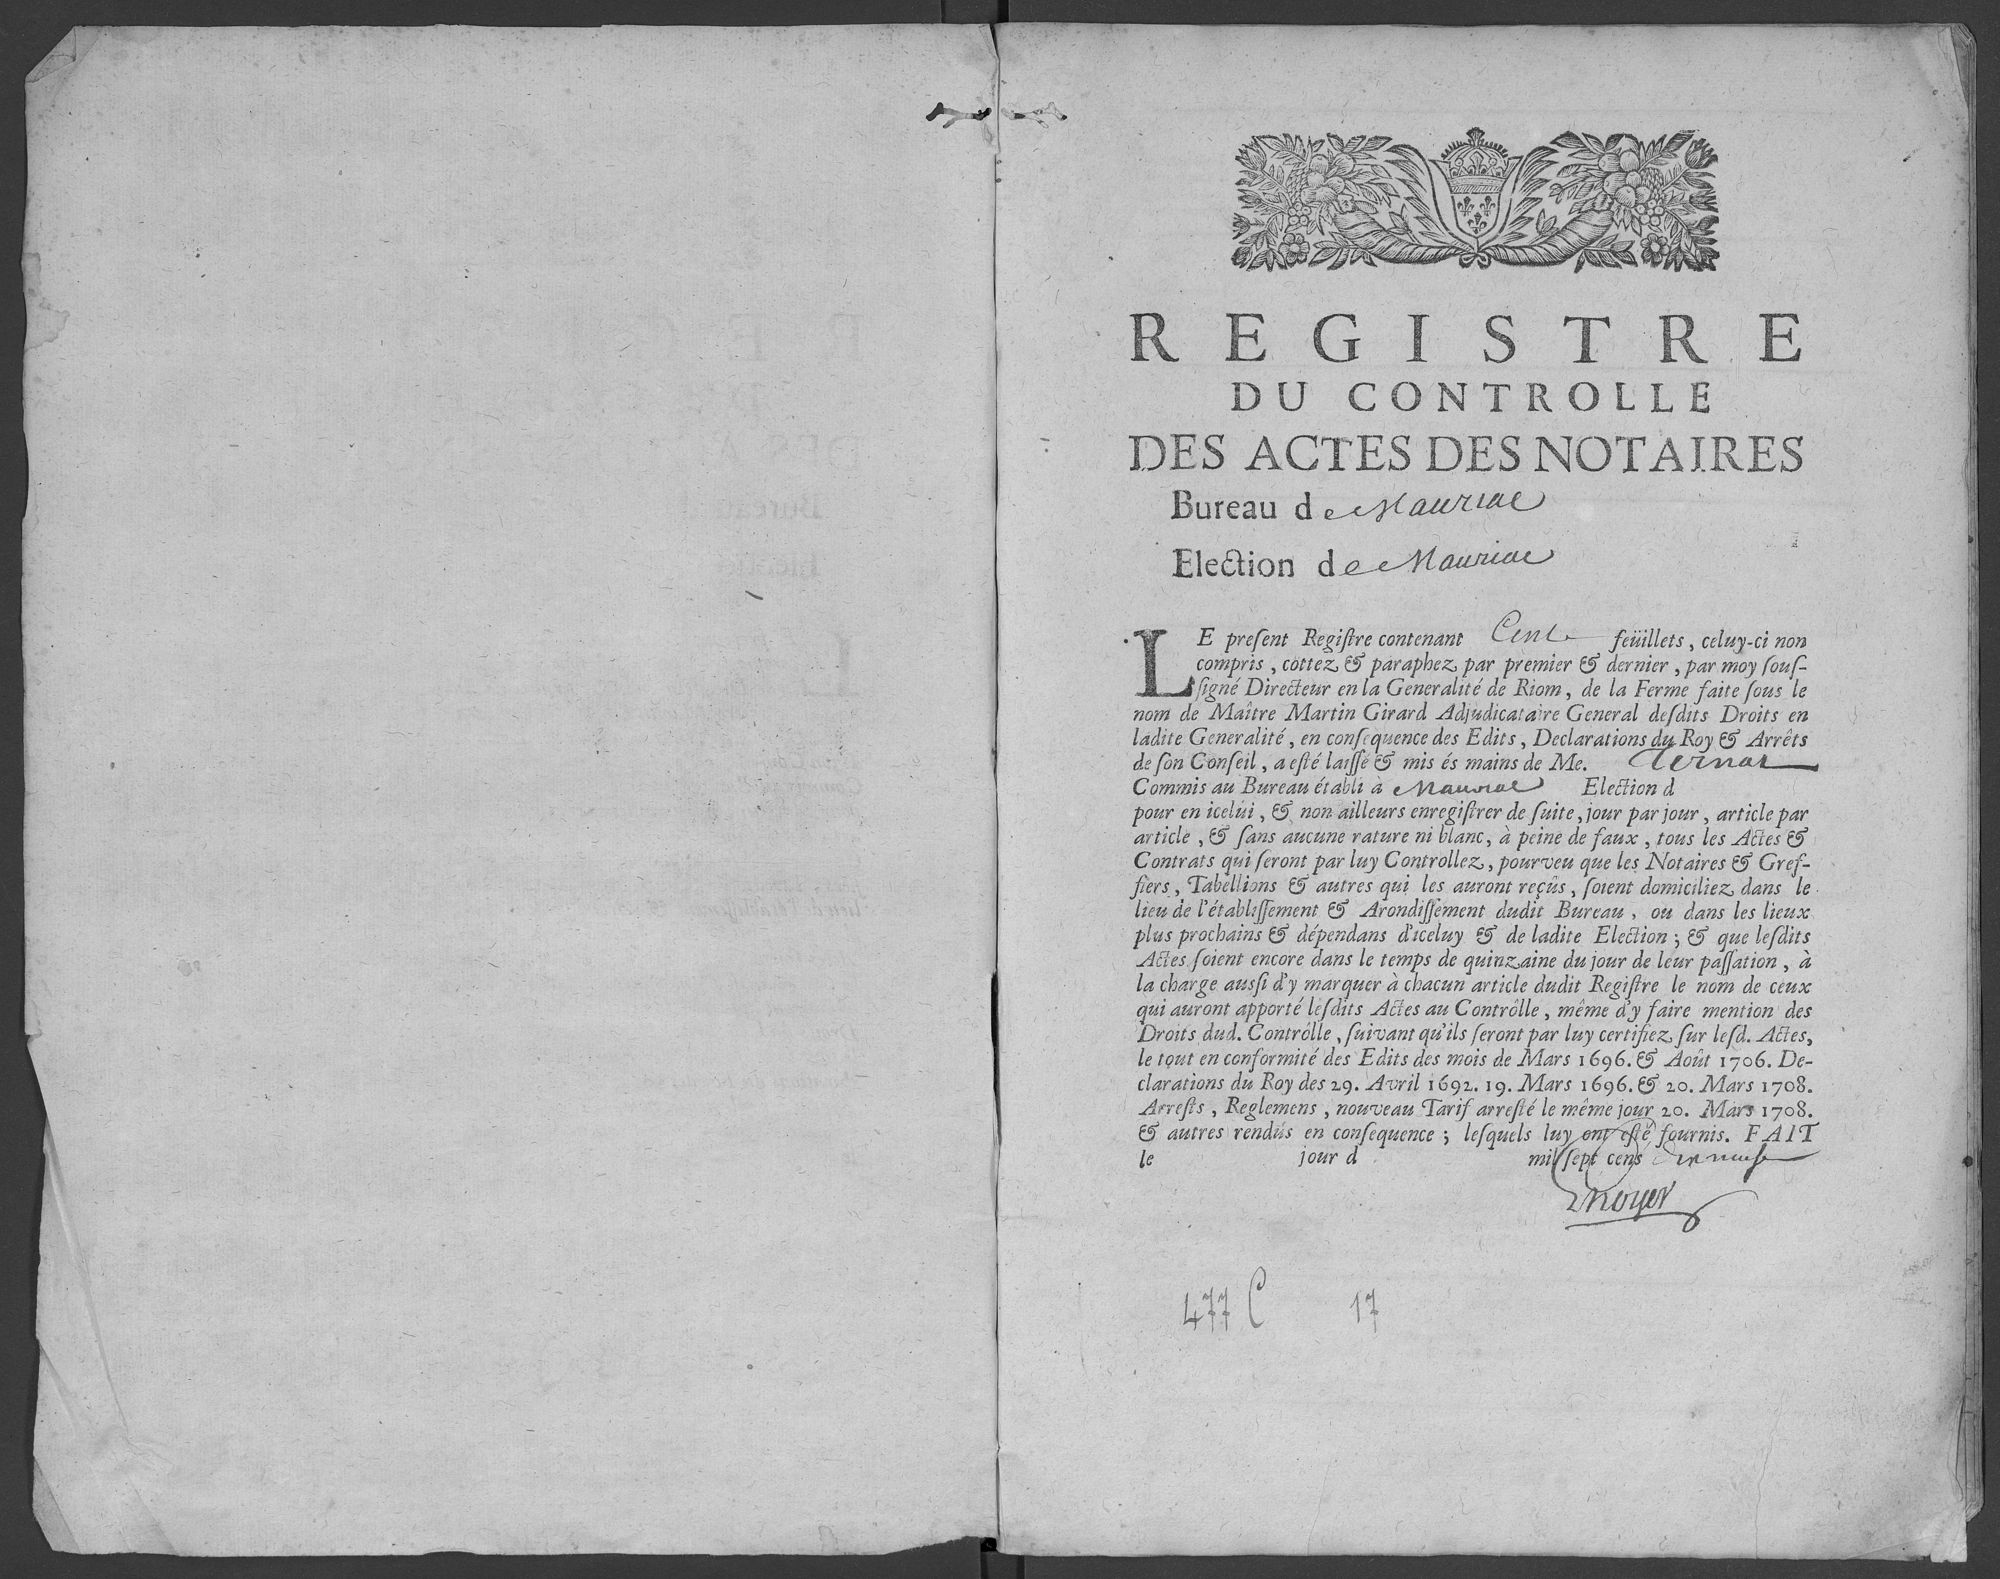 REGISTRE
DU CONTROLLE
DES ACTES DES NOTAIRES
Bureau de Mauriac
Election de Mauriac
LE preſent Regiſtre contenant Cent feüillets, celuy-ci non
compris, cottez & paraphez par premier & dernier, par moy ſouſ-
ſigné Directeur en la Generalité de Riom, de la Ferme faite ſous le
nom de Maître Martin Girard Adjudicataire General deſdits Droits en
ladite Generalité, en conſequence des Edits, Declarations du Roy & Arrêts
de ſon Conſeil, a eſté laiſſé & mis és mains de Me. Ternat
Commis au Bureau établi à Mauriac Election d
pour en icelui, & non ailleurs enregiſtrer de ſuite, jour par jour, article par
article, & ſans aucune rature ni blanc, à peine de faux, tous les Actes &
Contrats qui ſeront par luy Controllez, pourveu que les Notaires & Gref-
fiers, Tabellions & autres qui les auront reçûs, ſoient domiciliez dans le
lieu de l'établiſſement & Arondiſſement dudit Bureau, ou dans les lieux
plus prochains & dépendans d'iceluy & de ladite Election; & que leſdits
Actes ſoient encore dans le temps de quinzaine du jour de leur paſſation, à
la charge auſſi d'y marquer à chacun article dudit Regiſtre le nom de ceux
qui auront apporté leſdits Actes au Contrôlle, même d'y faire mention des
Droits dud. Contrôlle, ſuivant qu'ils ſeront par luy certifiez ſur leſd. Actes,
le tout en conformité des Edits des mois de Mars 1696. & Août 1706. De-
clarations du Roy des 29. Avril 1692. 19. Mars 1696. & 20. Mars 1708.
Arreſts, Reglemens, nouveau Tarif arreſté le même jour 20. Mars 1708.
& autres rendus en conſequence; leſquels luy ont eſté fournis. FAIT
le jour d mil ſept cens
Noyer
477 C 17